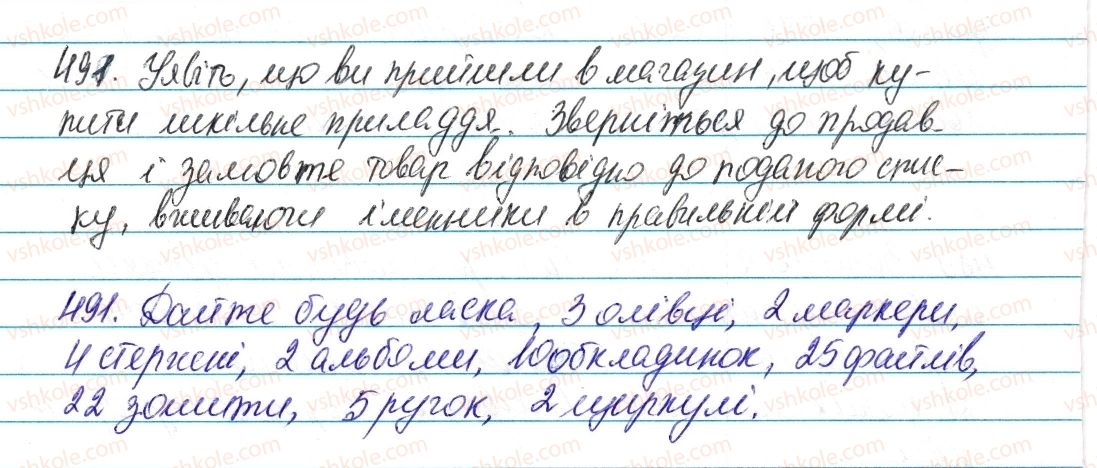 491. Уявіть, що ви прийшли в магазин, щоб ку-
пити шкільне приладдя. Зверніться до продав-
ця і замовте товар відповідно до поданого спис-
ку, вживаючи іменники в правильній формі.
491. Дайте будь ласка, 3 олівці, 2 маркери,
4 стержні, 2 альбоми, 10 обкладинок, 25 файлів,
22 зошити, 5 ручок, 2 циркулі.